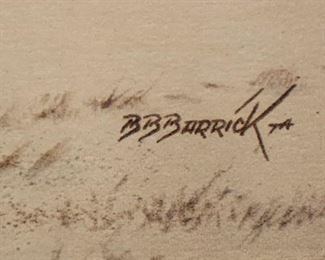 BBBARRICK TA